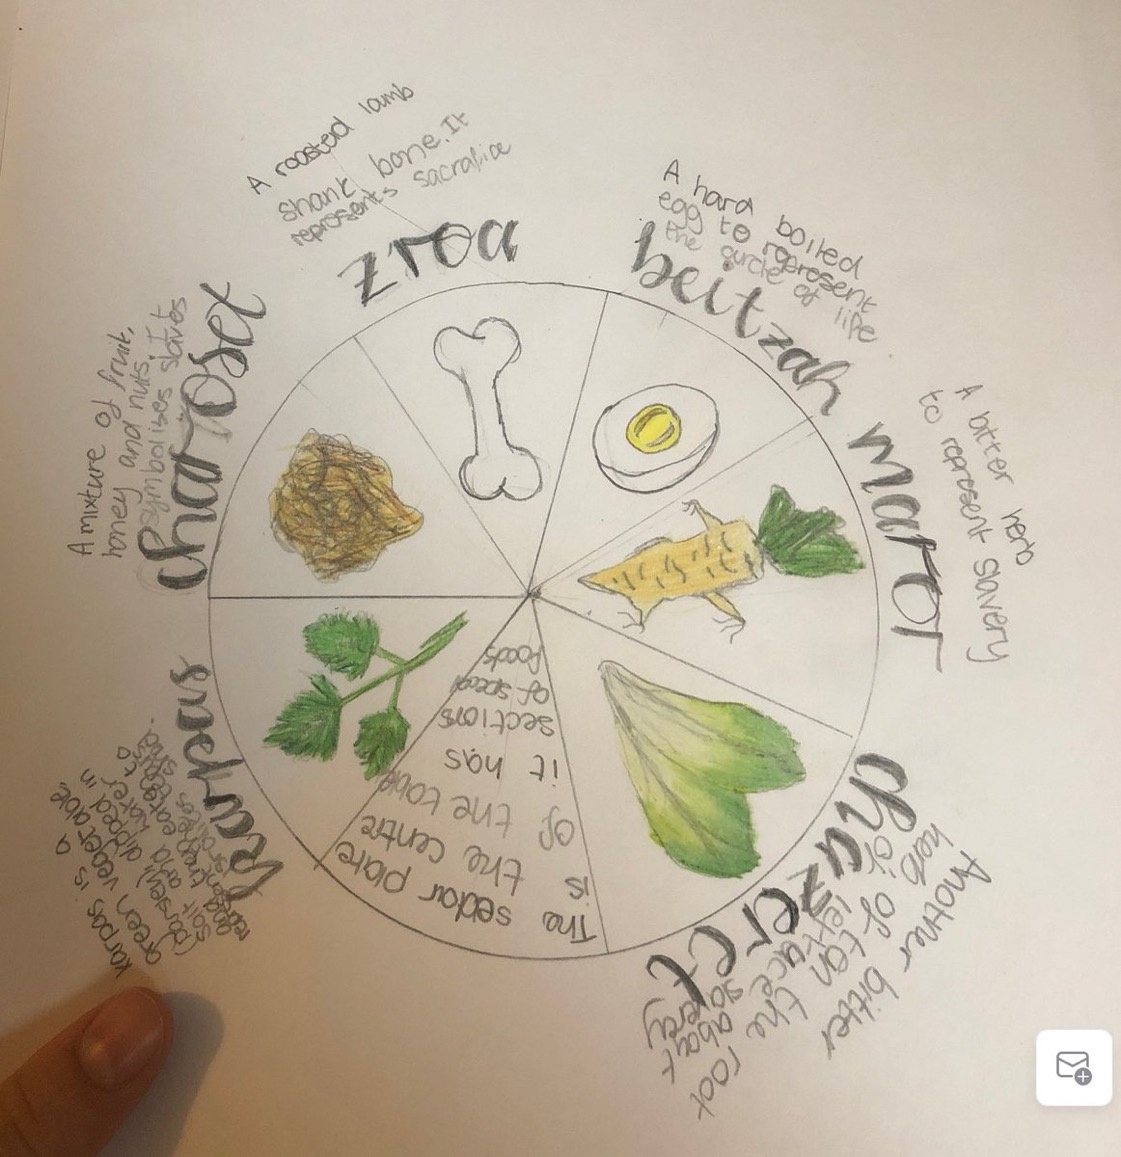 A roasted lamb
shank bone. It
represents sacrafice
zroa
A hard boiled
egg to represent
the circle of life
beitzah
A bitter herb
to represent slavery
maror
chazeret
Another bitter
herb often the root
of lettuce
about
slavery
The sedar plate
is the centre
of the table
it has
sections
of specal
foods
karpas
karpas is a
green vegetable,
dipped in
salt water
represent
charoset
A mixture of fruit,
honey and nuts. It
symbolises slaves